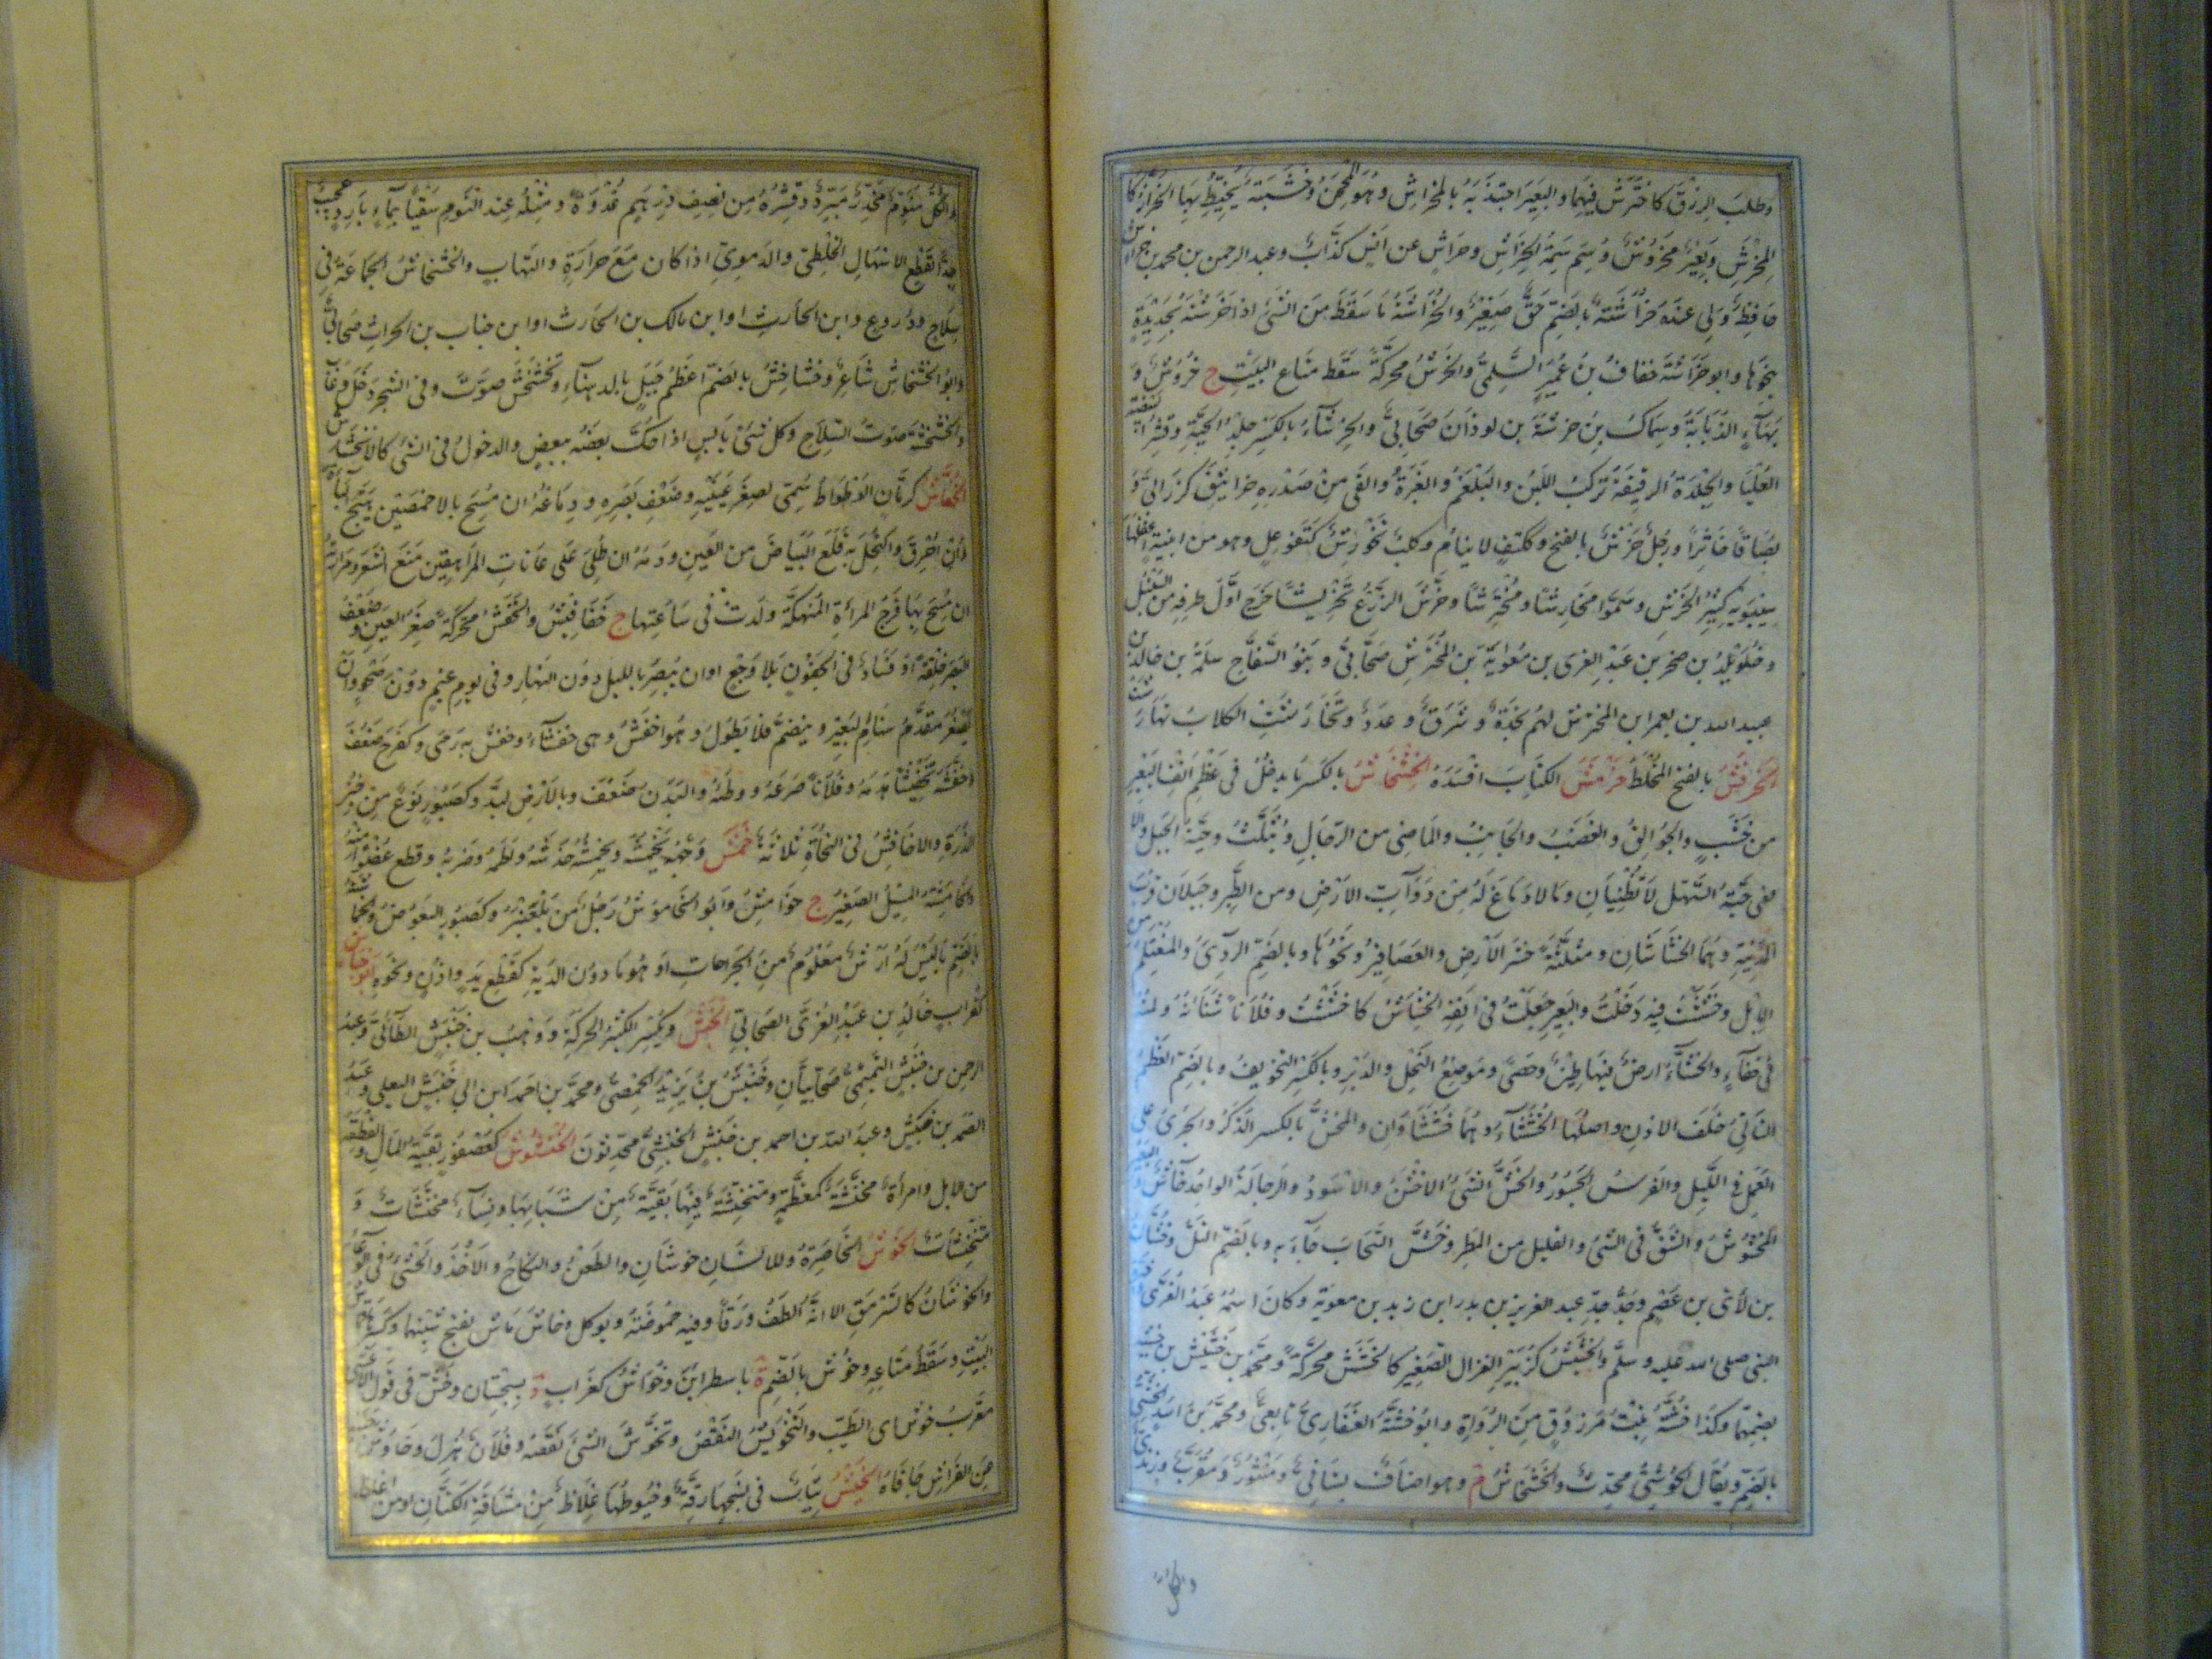 وطلب الرزق كاخترش فيهما والبعير اجتذبه بالمخراش وهو المحجن وخشبة يخيط بها الخراز كا
لمخرش وبعير مخروش وسم سمة الخراش وخراش عن انس كذاب وعبد الرحمن بن محمد بن خراش
حافظ ولي عنده خراشة بالضم حق صغير والخراشة ما سقط من الشئ اذا خرشته بحديدة
ونحوها وابو خراشة خفاف بن عمير السلمى والخرش محركة سقط متاع البيت ج خروش و
بهاء الذبابة وسماك بن خرشة بن لوذان صحابي والخرشاء بالكسر جلد الحية وقشرة البيضة
العليا والجلدة الرقيقة تركب اللبن والبلغم والغبرة والقى من صدره خراشى كزرابى
بصاقا خاثرا ورجل خرش بالفتح وككتف لا ينام وكلب نخورش كنفوعل وهو من ابنية اغفلها
سيبويه كثير الخرش وسموا مخارشا ومخترشا وخرش الزرع تخريشا خرج اول طرفه من السنبل
وخويلد بن صخر بن عبد العزى بن معوية بن المخرش صحابي وبنو السفاح سلمة بن خالد بن
عبيد الله بن يعمر ابن المخرش لهم نجدة وشرف وعدد وتخارشت الكلاب تهارشت
المخرفش بالفتح المخلط خرمش الكتاب افسده الخشاش بالكسر ما يدخل في عظم انف البعير
من خشب والجوالق والغضب والجانب والماضى من الرجال ويثلث وحية الجبل والا
فعى حية السهل لا تطنيان وما لا دماغ له من دواب الارض ومن الطير وجبلان قرب
المدينة وهما الخشاشان ومثلثة حشر الارض والعصافير ونحوها وبالضم الردئ والمغتلم من
الابل وخششت فيه دخلت والبعير جعلت في انفه الخشاش كاخششت وفلانا شنأته ولمته
في خفاء والخشاء ارض فيها طين وحصى وموضع النحل والدبر وبالكسر التخويف وبالضم العظم
الناتئ خلف الاذن واصلها الخششاء وهما خششاوان والمخش بالكسر الذكر والجرى على
العمل في الليل والفرس الجسور والخش الشئ الاخشن والاسود والرجالة الواحد خاش والبعير
المخشوش والشق في الشئ والقليل من المطر وخش السحاب جاء به وبالضم التل وخشان
بن لأى بن عصم وجد جد عبد العزيز بن بدر ابن زيد بن معوية وكان اسمه عبد العزى فغيره
النبى صلى الله عليه وسلم والخشيش كزبير الغزال الصغير كالخشش محركة ومحمد بن خشيش بن خشية
بضمهما وكذا خشة بنت مرزوق من الرواة وابو خشة الغفارى تابعى ومحمد بن اسد الخشى
بالضم ويقال الخوشى محدث والخشخاش م وهو اصناف بستانى ومنثور ومقرن وزبدى
والكل
والكل منوم مخدر مبرد وقشره من نصف درهم غدوة ومثله عند النوم سقيا بماء بارد عجيب
جدا لقطع الاسهال الخلطى والدموى اذا كان مع حرارة والتهاب والخشخاش الجماعة في
سلاح ودروع وابن الحارث او ابن مالك بن الحارث او ابن جناب بن الحارث صحابي
وابو الخشخاش شاعر وخشاخش بالضم اعظم جبل بالدهناء وتخشخش صوت وفى الشجر دخل وغاب
والخشخشة صوت السلاح وكل شئ يابس اذا حك بعضه ببعض والدخول في الشئ كالانخشاش
الخفاش كرمان الوطواط سمى لصغر عينيه وضعف بصره ودماغه ان مسح بالاخمصين هيج الباه
وان احرق واكتحل به قلع البياض من العين ودمه ان طلى على عانات المراهقين منع الشعر ومرارته
ان مسح بها فرج المرأة المنهكة ولدت في ساعتها ج خفافيش والخفش محركة صغر العين وضعف
البصر خلقة او فساد في الجفون بلا وجع او ان يبصر بالليل دون النهار وفى يوم غيم دون صحو وان
يصغر مقدم سنام البعير وينضم فلا يطول وهو اخفش وهى خفشاء وخفش به رمى وكفرح ضعف
وخفشه تخفيشا هدمه وفلانا صرعه ووطئه والبدن ضعف وبالارض لبد وكصبور نوع من خبز
الذرة والاخافش في النحاة ثلاثة خمش وجهه يخمشه ويخمشه خدشه ولطمه وضربه وقطع عضوا منه
والخامشة المسيل الصغير ج خوامش وابو الخاموش رجل من بلعنبر وكصبور البعوض والخماشة
بالضم ما ليس له ارش معلوم من الجراحات او هو ما دون الدية كقطع يد واذن ونحوه ابو خناش
كغراب خالد بن عبد العزى الصحابي الخنش ويكسر الكثير الحركة ووهب بن خنبش الطائى وعبد
الرحمن بن خنبش التميمى صحابيان وخنبش بن يزيد الحمصى ومحمد بن احمد ابن ابى خنبش البعلى وعبد
الصمد بن خنبش وعبد الله بن احمد بن خنبش الخنبشى محدثون الخنشوش كعصفور بقية المال والقطعة
من الابل وامرأة مخنشة كمعظمة ومتخنشة فيها بقية من شبابها ونساء مخنشات و
متخنشات الخوش الخاصرة وللانسان خوشان والطعن والنكاح والاخذ والحثى في الوعاء
والخوشان كالسرمق الا انه الطف ورقا وفيه حموضة ويوكل وخاش ماش بفتح شينهما وكسرهما قماش
البيت وسقط متاعه وخوش بالضم ة باسفراين وخواش كغراب د بسجستان وخش في قول الاعشى
معرب خوش اى الطيب والتخويش النقص وتخوش الشئ نقصه وفلان هزل وخاوش جنبه
عن الفراش جافاه الخيش ثياب في نسجها رقة وخيوطها غلاظ من مشاقة الكتان او من اغلظ